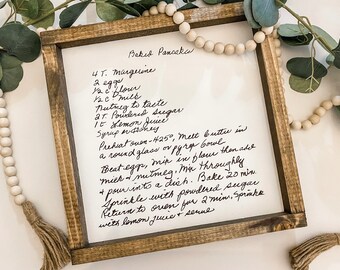 Baked Pancake
4 T. Margerine
2 eggs
1/2 c flour
1/2 c milk
Nutmeg to taste
2 T. Powdered Sugar
1 t. Lemon Juice
Syrup or Honey
Preheat oven - 425°, Melt butter in
a round glass or pyrex bowl.
Beat eggs, mix in flour then add
milk & nutmeg. Mix throughly
& pour into a dish. Bake 20 min
Sprinkle with powdered sugar
Return to oven for 2 min, sprinkle
with lemon juice & serve